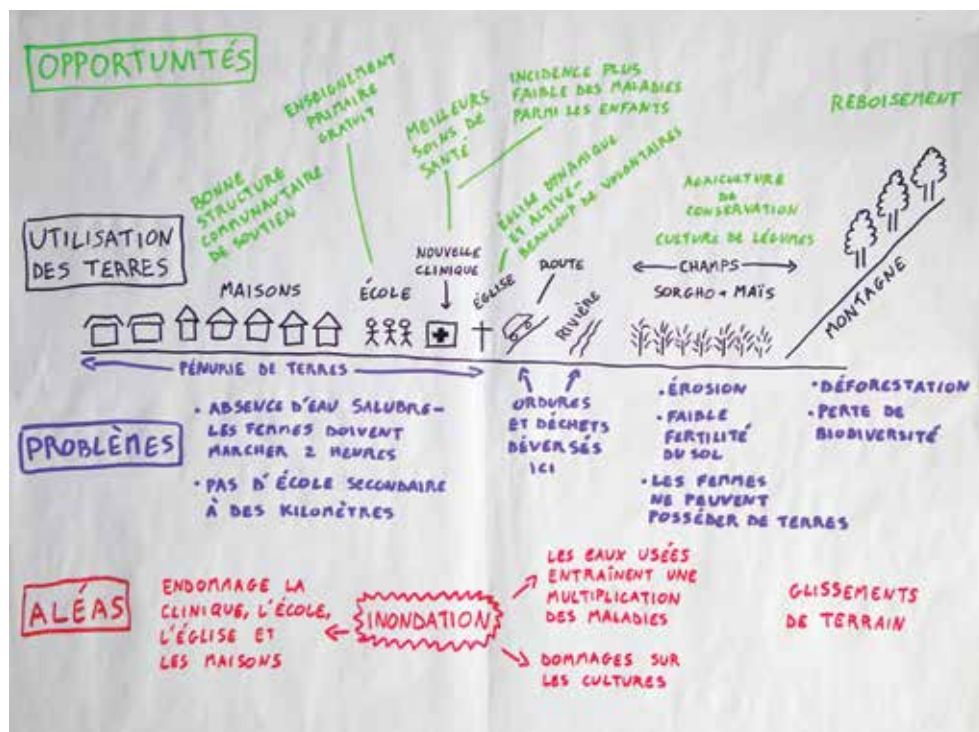 OPPORTUNITÉS
ENSEIGNEMENT
PRIMAIRE
GRATUIT
MEILLEURS
SOINS DE
SANTÉ
INCIDENCE PLUS
FAIBLE DES MALADIES
PARMI LES ENFANTS
REBOISEMENT
BONNE
STRUCTURE
COMMUNAUTAIRE
DE SOUTIEN
ÉGLISE DYNAMIQUE
ET ACTIVE-
BEAUCOUP DE VOLONTAIRES
AGRICULTURE
DE
CONSERVATION
CULTURE DE LÉGUMES
UTILISATION
DES TERRES
MAISONS
ÉCOLE
NOUVELLE
CLINIQUE
ÉGLISE
ROUTE
RIVIÈRE
CHAMPS
SORGHO + MAÏS
MONTAGNE
PÉNURIE DE TERRES
PROBLÈMES
• ABSENCE D'EAU SALUBRE-
LES FEMMES DOIVENT
MARCHER 2 HEURES
• PAS D'ÉCOLE SECONDAIRE
À DES KILOMÈTRES
ORDURES
ET DÉCHETS
DÉVERSÉS
ICI
• ÉROSION
• FAIBLE
FERTILITÉ
DU SOL
• LES FEMMES
NE PEUVENT
POSSÉDER DE TERRES
• DÉFORESTATION
• PERTE DE
BIODIVERSITÉ
ALÉAS
ENDOMMAGE LA
CLINIQUE, L'ÉCOLE,
L'ÉGLISE ET
LES MAISONS
INONDATION
LES EAUX USÉES
ENTRAÎNENT UNE
MULTIPLICATION
DES MALADIES
DOMMAGES SUR
LES CULTURES
GLISSEMENTS
DE TERRAIN